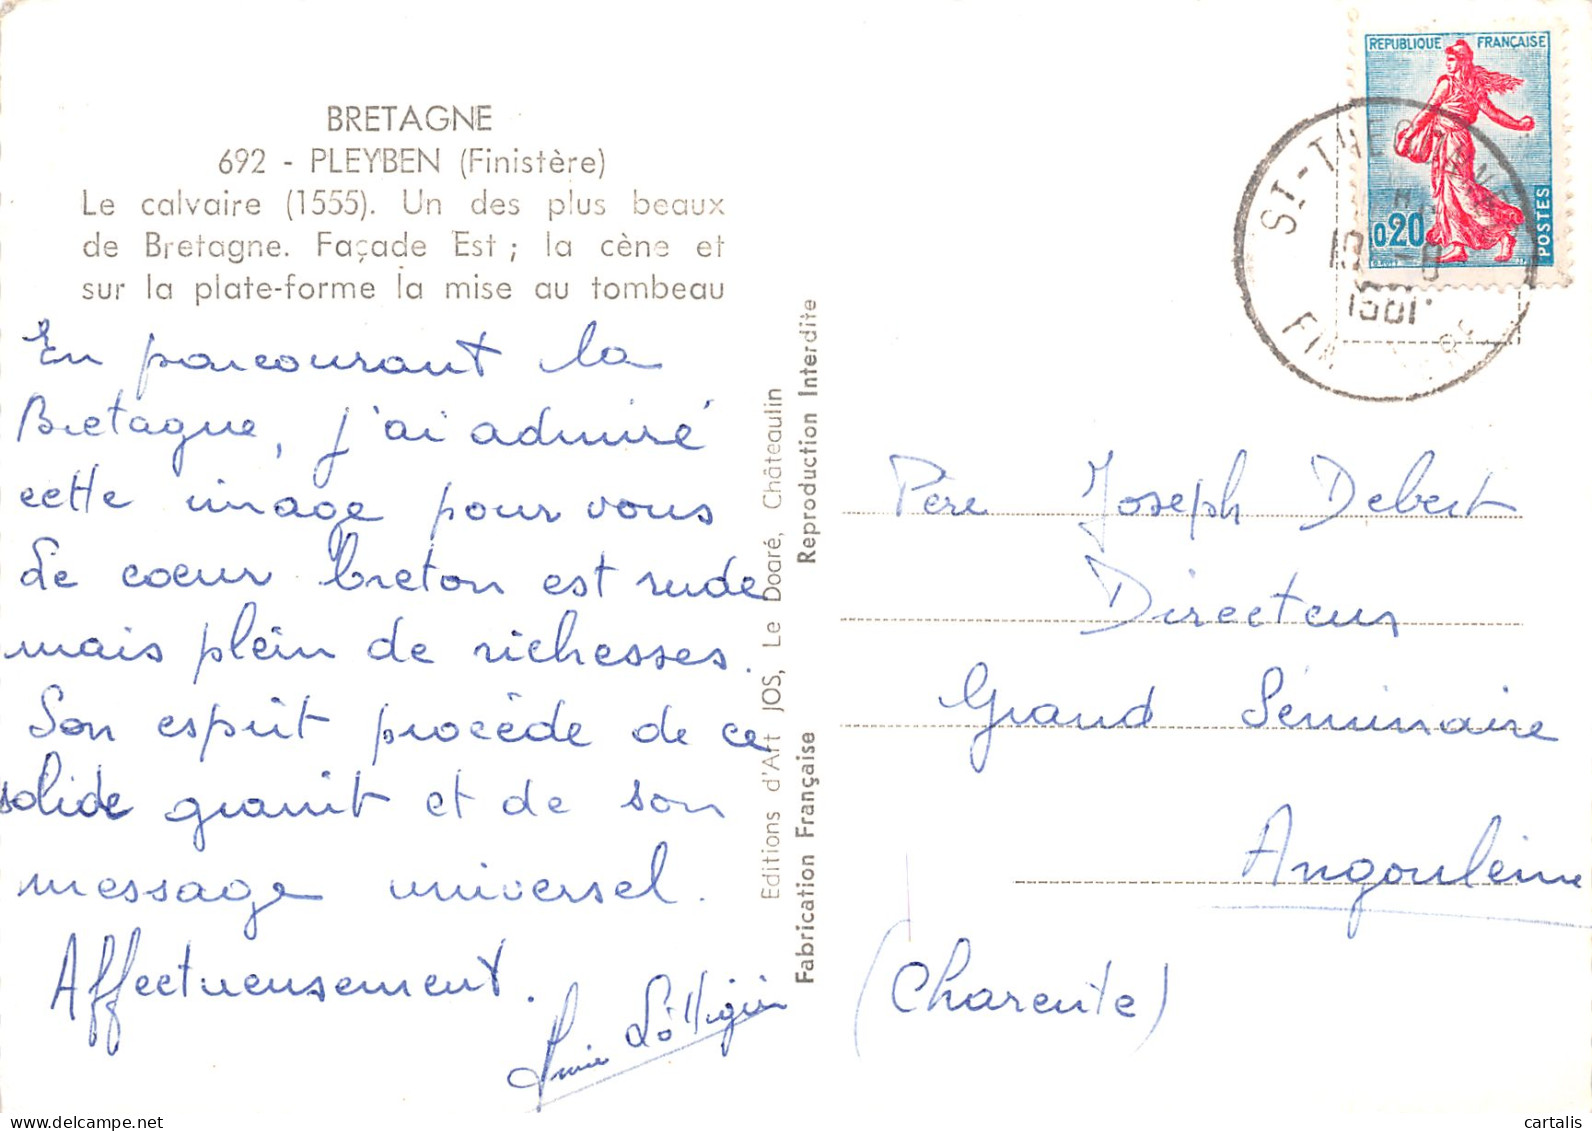 BRETAGNE
692 - PLEYBEN (Finistère)
Le calvaire (1555). Un des plus beaux
de Bretagne. Façade Est ; la cène et
sur la plate-forme la mise au tombeau
En parcourant la
Bretagne, j'ai admiré
cette image pour vous
Le coeur breton est rude
mais plein de richesses.
Son esprit procède de ce
solide granit et de son
message universel.
Affectueusement.
Editions d'Art JOS, Le Doaré, Châteaulin
Fabrication Française
Reproduction Interdite
REPUBLIQUE FRANÇAISE
0,20
POSTES
1961
Père Joseph Debect
Directeur
Grand Séminaire
Angoulême
(Charente)
www.delcampe.net
cartalis